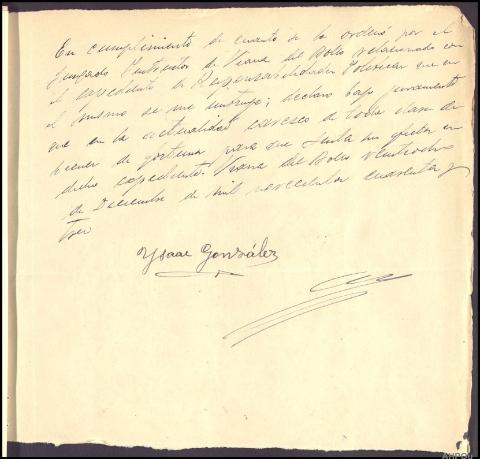 En cumplimiento de cuanto se ordenó por el
Juzgado Instructor de Viana del Bollo relacionado con
el expediente de Responsabilidades Políticas que en
el mismo se me instruye; declaro bajo juramento
que en la actualidad carezco de toda clase de
bienes de fortuna para que surta sus efectos en
dicho expediente. Viana del Bollo veintiocho
de Diciembre de mil novecientos cuarenta y
tres
Ysaac González